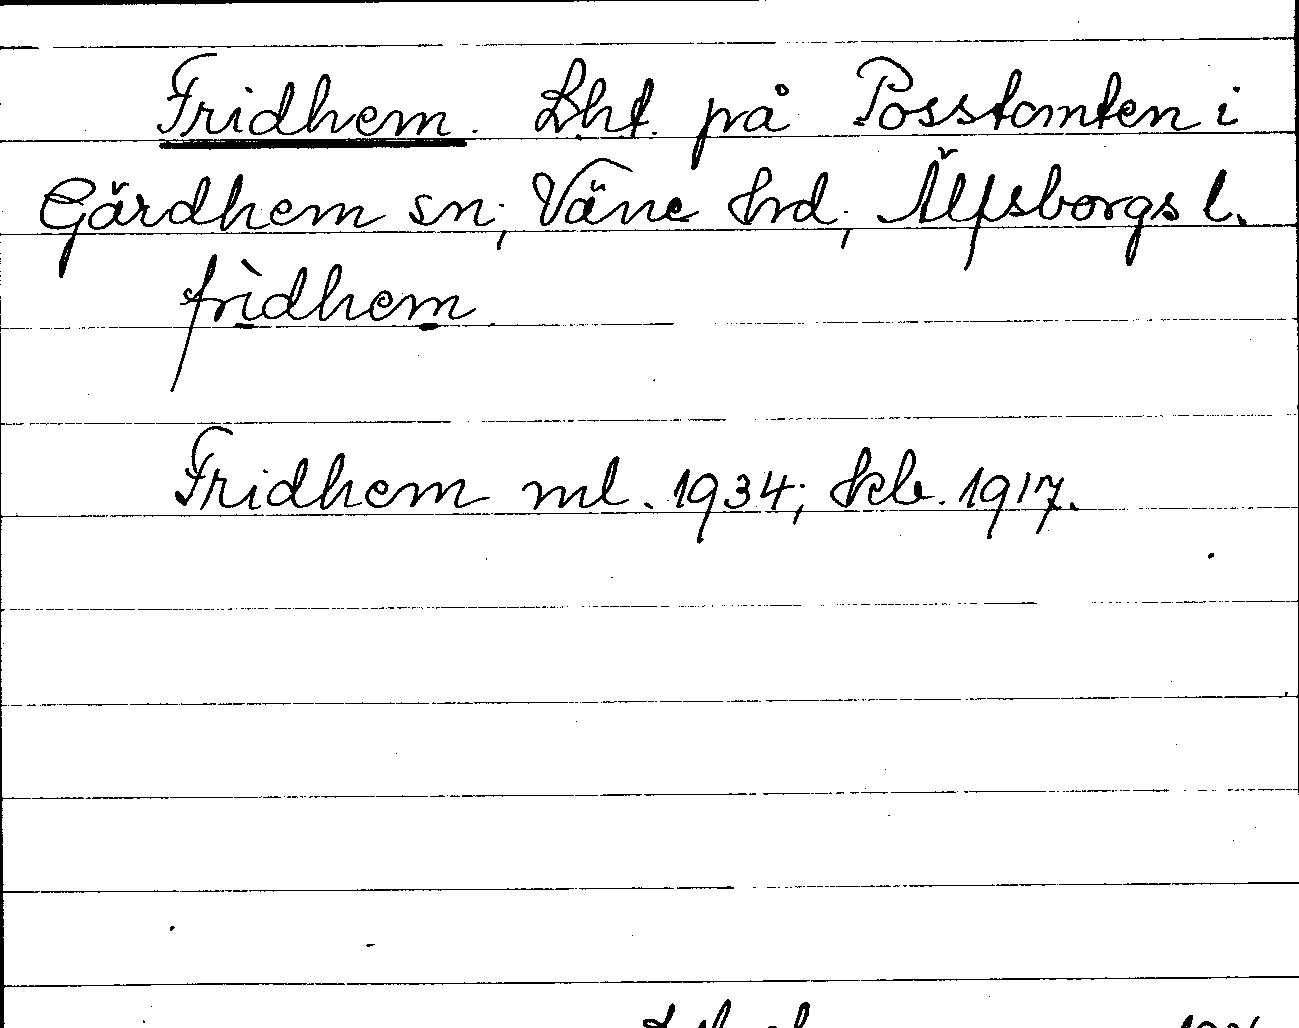 Fridhem. Lht. på Posstomten i
Gärdhem sn, Väne hrd, Älfsborgs l.
frìdhem
Fridhem ml. 1934; skb. 1917.